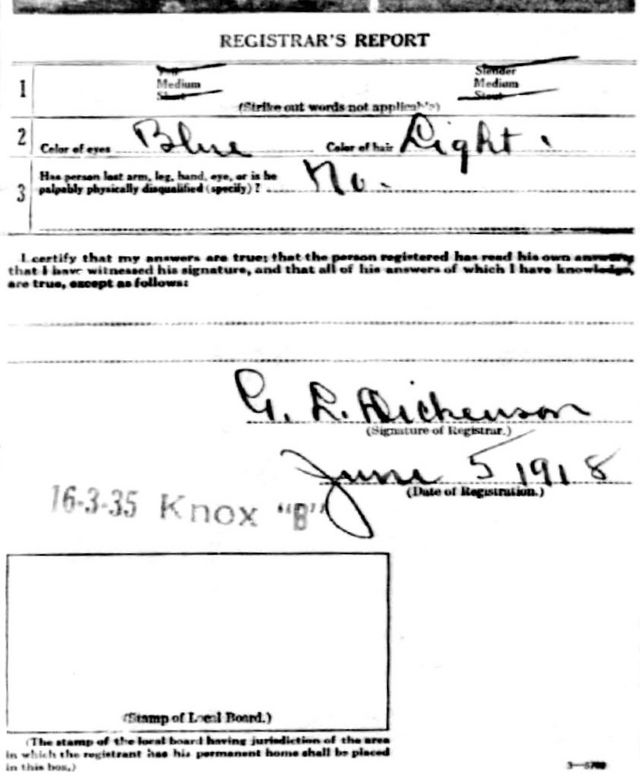 REGISTRAR'S REPORT
1 Tall Slender
Medium Medium
Short Stout
(Strike out words not applicable)
2 Color of eyes Blue Color of hair Light.
3 Has person lost arm, leg, hand, eye, or is he
palpably physically disqualified (specify)? No.
I certify that my answers are true; that the person registered has read his own answers,
that I have witnessed his signature, and that all of his answers of which I have knowledge,
are true, except as follows:
G. L. Dickenson
(Signature of Registrar.)
June 5 1918
(Date of Registration.)
16-3-35 Knox "B"
(Stamp of Local Board.)
(The stamp of the local board having jurisdiction of the area
in which the registrant has his permanent home shall be placed
in this box.)